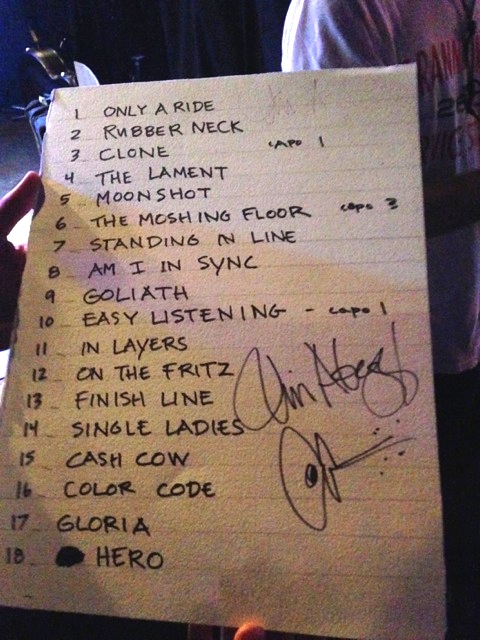 1 ONLY A RIDE
2 RUBBER NECK
3 CLONE capo 1
4 THE LAMENT
5 MOONSHOT
6 THE MOSHING FLOOR capo 3
7 STANDING IN LINE
8 AM I IN SYNC
9 GOLIATH
10 EASY LISTENING - capo 1
11 IN LAYERS
12 ON THE FRITZ
13 FINISH LINE
14 SINGLE LADIES
15 CASH COW
16 COLOR CODE
17 GLORIA
18 HERO